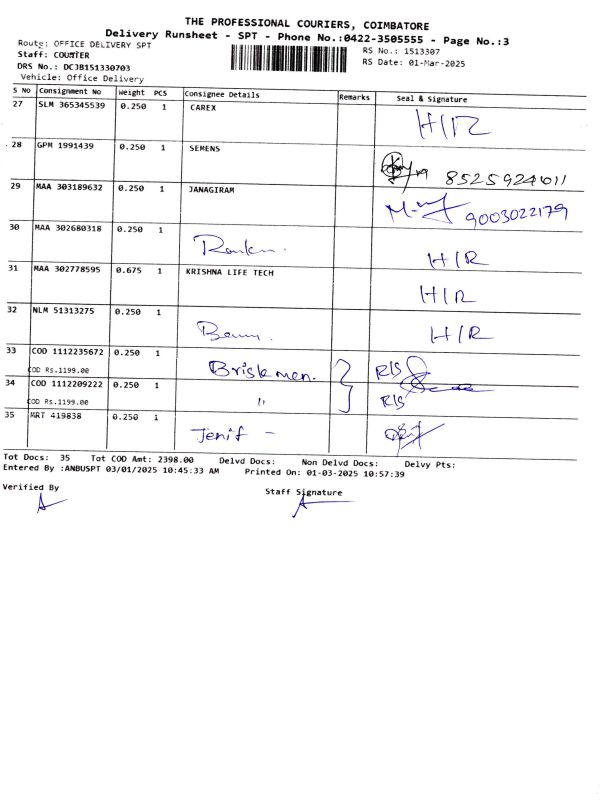 THE PROFESSIONAL COURIERS, COIMBATORE
Delivery Runsheet - SPT - Phone No.:0422-3505555 - Page No.:3
Route: OFFICE DELIVERY SPT
RS No.: 1513307
Staff: COUNTER
RS Date: 01-Mar-2025
DRS No.: DCJB151330703
Vehicle: Office Delivery
S No Consignment No Weight PCS Consignee Details Remarks Seal & Signature
27 SLM 365345539 0.250 1 CAREX H/R
28 GPM 1991439 0.250 1 SEMENS 8525924611
29 MAA 303189632 0.250 1 JANAGIRAM 9003022179
30 MAA 302680318 0.250 1 H/R
31 MAA 302778595 0.675 1 KRISHNA LIFE TECH H/R
32 NLM 51313275 0.250 1 H/R
33 COD 1112235672 0.250 1 Briskmen. R/S
COD Rs.1199.00
34 COD 1112209222 0.250 1 " R/S
COD Rs.1199.00
35 MRT 419838 0.250 1 Jenif -
Tot Docs: 35 Tot COD Amt: 2398.00 Delvd Docs: Non Delvd Docs: Delvy Pts:
Entered By :ANBUSPT 03/01/2025 10:45:33 AM Printed On: 01-03-2025 10:57:39
Verified By Staff Signature